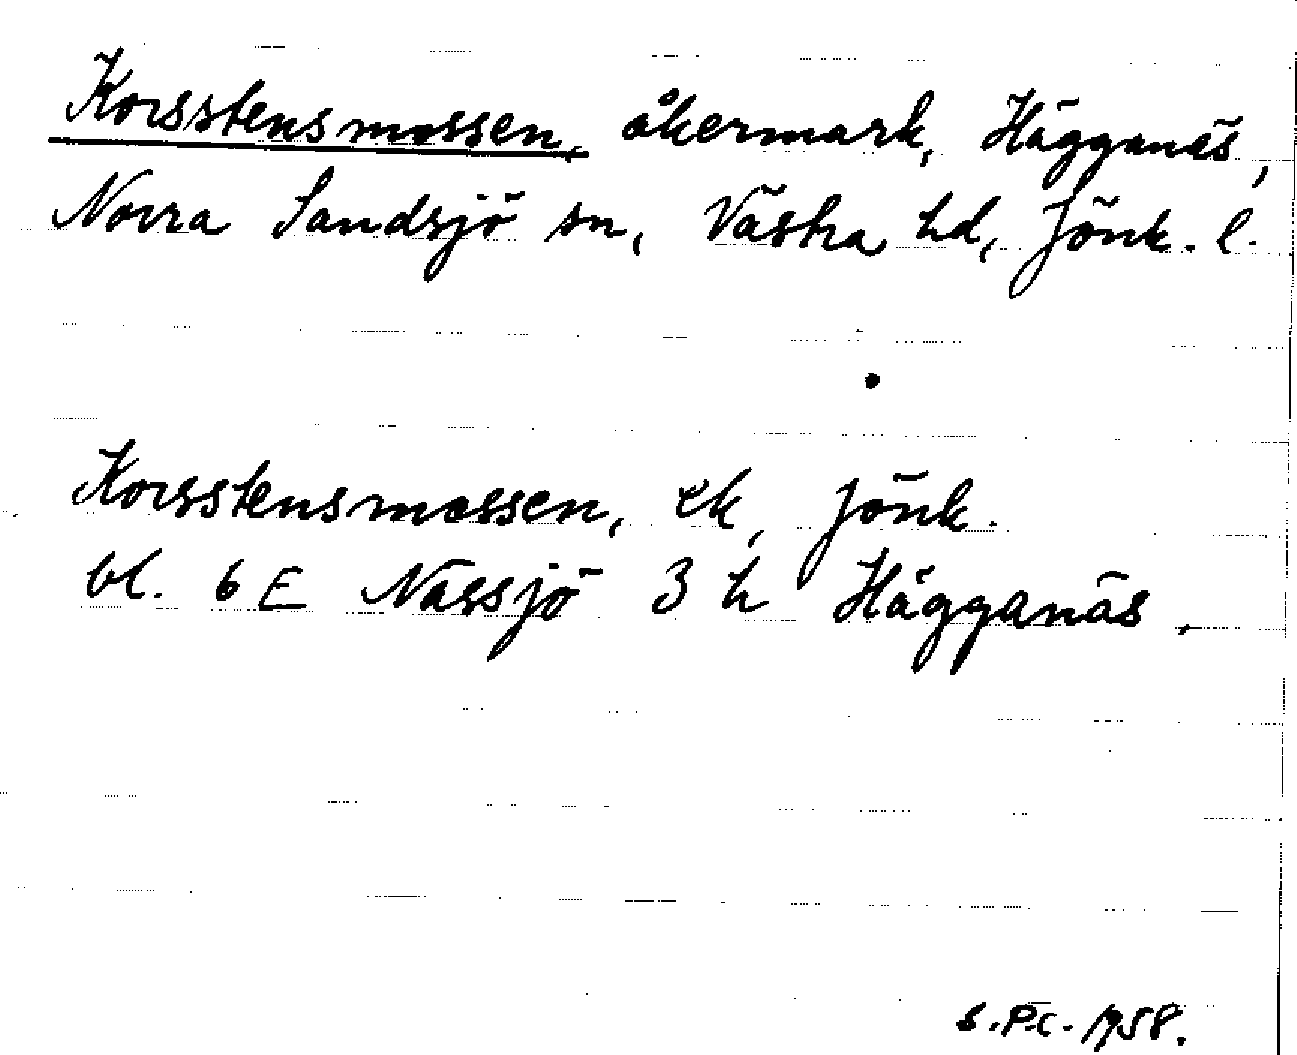 Korsstensmossen, åkermark, Hägganäs,
Norra Sandsjö sn, Västra hd, Jönk. l.
Korsstensmossen, ek, Jönk.
bl. 6 E Nässjö 3 h Hägganäs.
S.P.C. 1958.